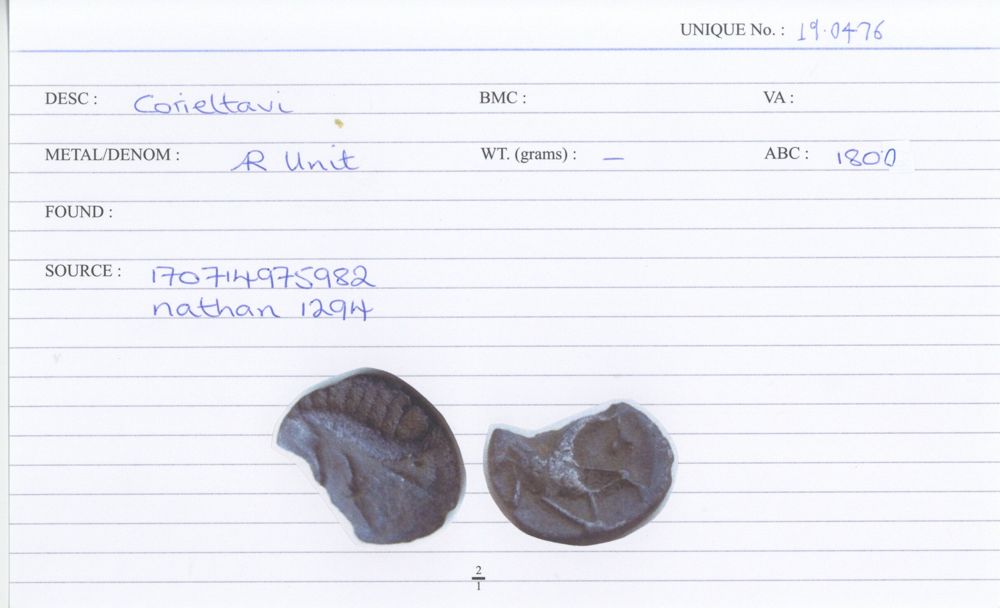 UNIQUE No. : 19.0476
DESC : Corieltavi BMC : VA :
METAL/DENOM : AR Unit WT. (grams) : — ABC : 1800
FOUND :
SOURCE : 170714975982
nathan 1294
2
1